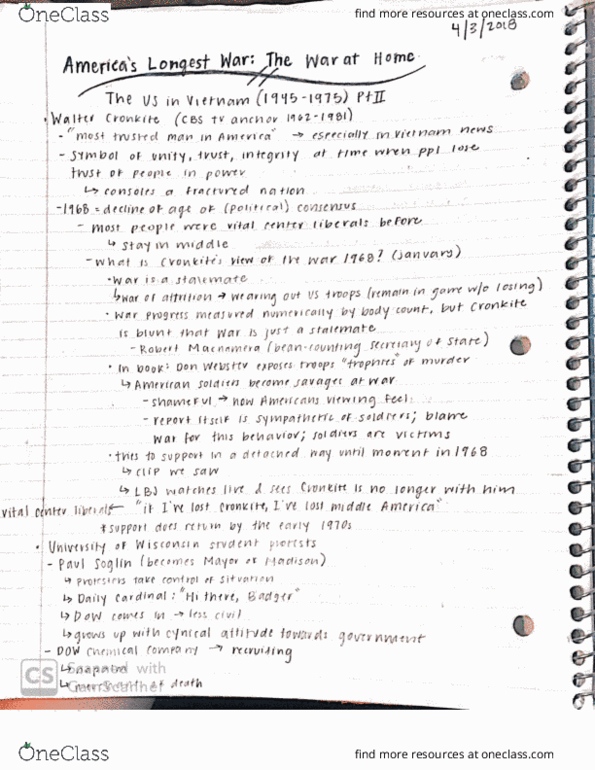 OneClass
find more resources at oneclass.com
4/3/2018
America's Longest War: The War at Home
The US in Vietnam (1945-1975) Pt II
• Walter Cronkite (CBS TV anchor 1962-1981)
- "most trusted man in America" → especially in Vietnam news
- symbol of unity, trust, integrity at time when ppl lose
trust of people in power
↳ consoles a fractured nation
- 1968 = decline of age of (political) consensus
- most people were vital center liberals before
↳ stay in middle
- what is Cronkite's view of the war 1968? (January)
• war is a stalemate
↳ war of attrition → wearing out US troops (remain in game w/o losing)
• war progress measured numerically by body count, but Cronkite
is blunt that war is just a stalemate
- Robert Macnamera (bean-counting secretary of state)
• In book: Don Webster exposes troops "trophies" of murder
↳ American soldiers become savages at war
- shameful → how Americans viewing feel
- report itself is sympathetic of soldiers; blame
war for this behavior; soldiers are victims
• tries to support in a detached way until moment in 1968
↳ clip we saw
↳ LBJ watches live & sees Cronkite is no longer with him
vital center liberals ← "if I've lost Cronkite, I've lost middle America"
* support does return by the early 1970s
• University of Wisconsin student protests
- Paul Soglin (becomes Mayor of Madison)
↳ protesters take control of situation
↳ Daily Cardinal: "Hi there, Badger"
↳ DOW comes in → less civil
↳ grows up with cynical attitude towards government
- DOW Chemical Company → recruiting
↳ napalm
↳ of death
CS Scanned with
CamScanner
OneClass
find more resources at oneclass.com